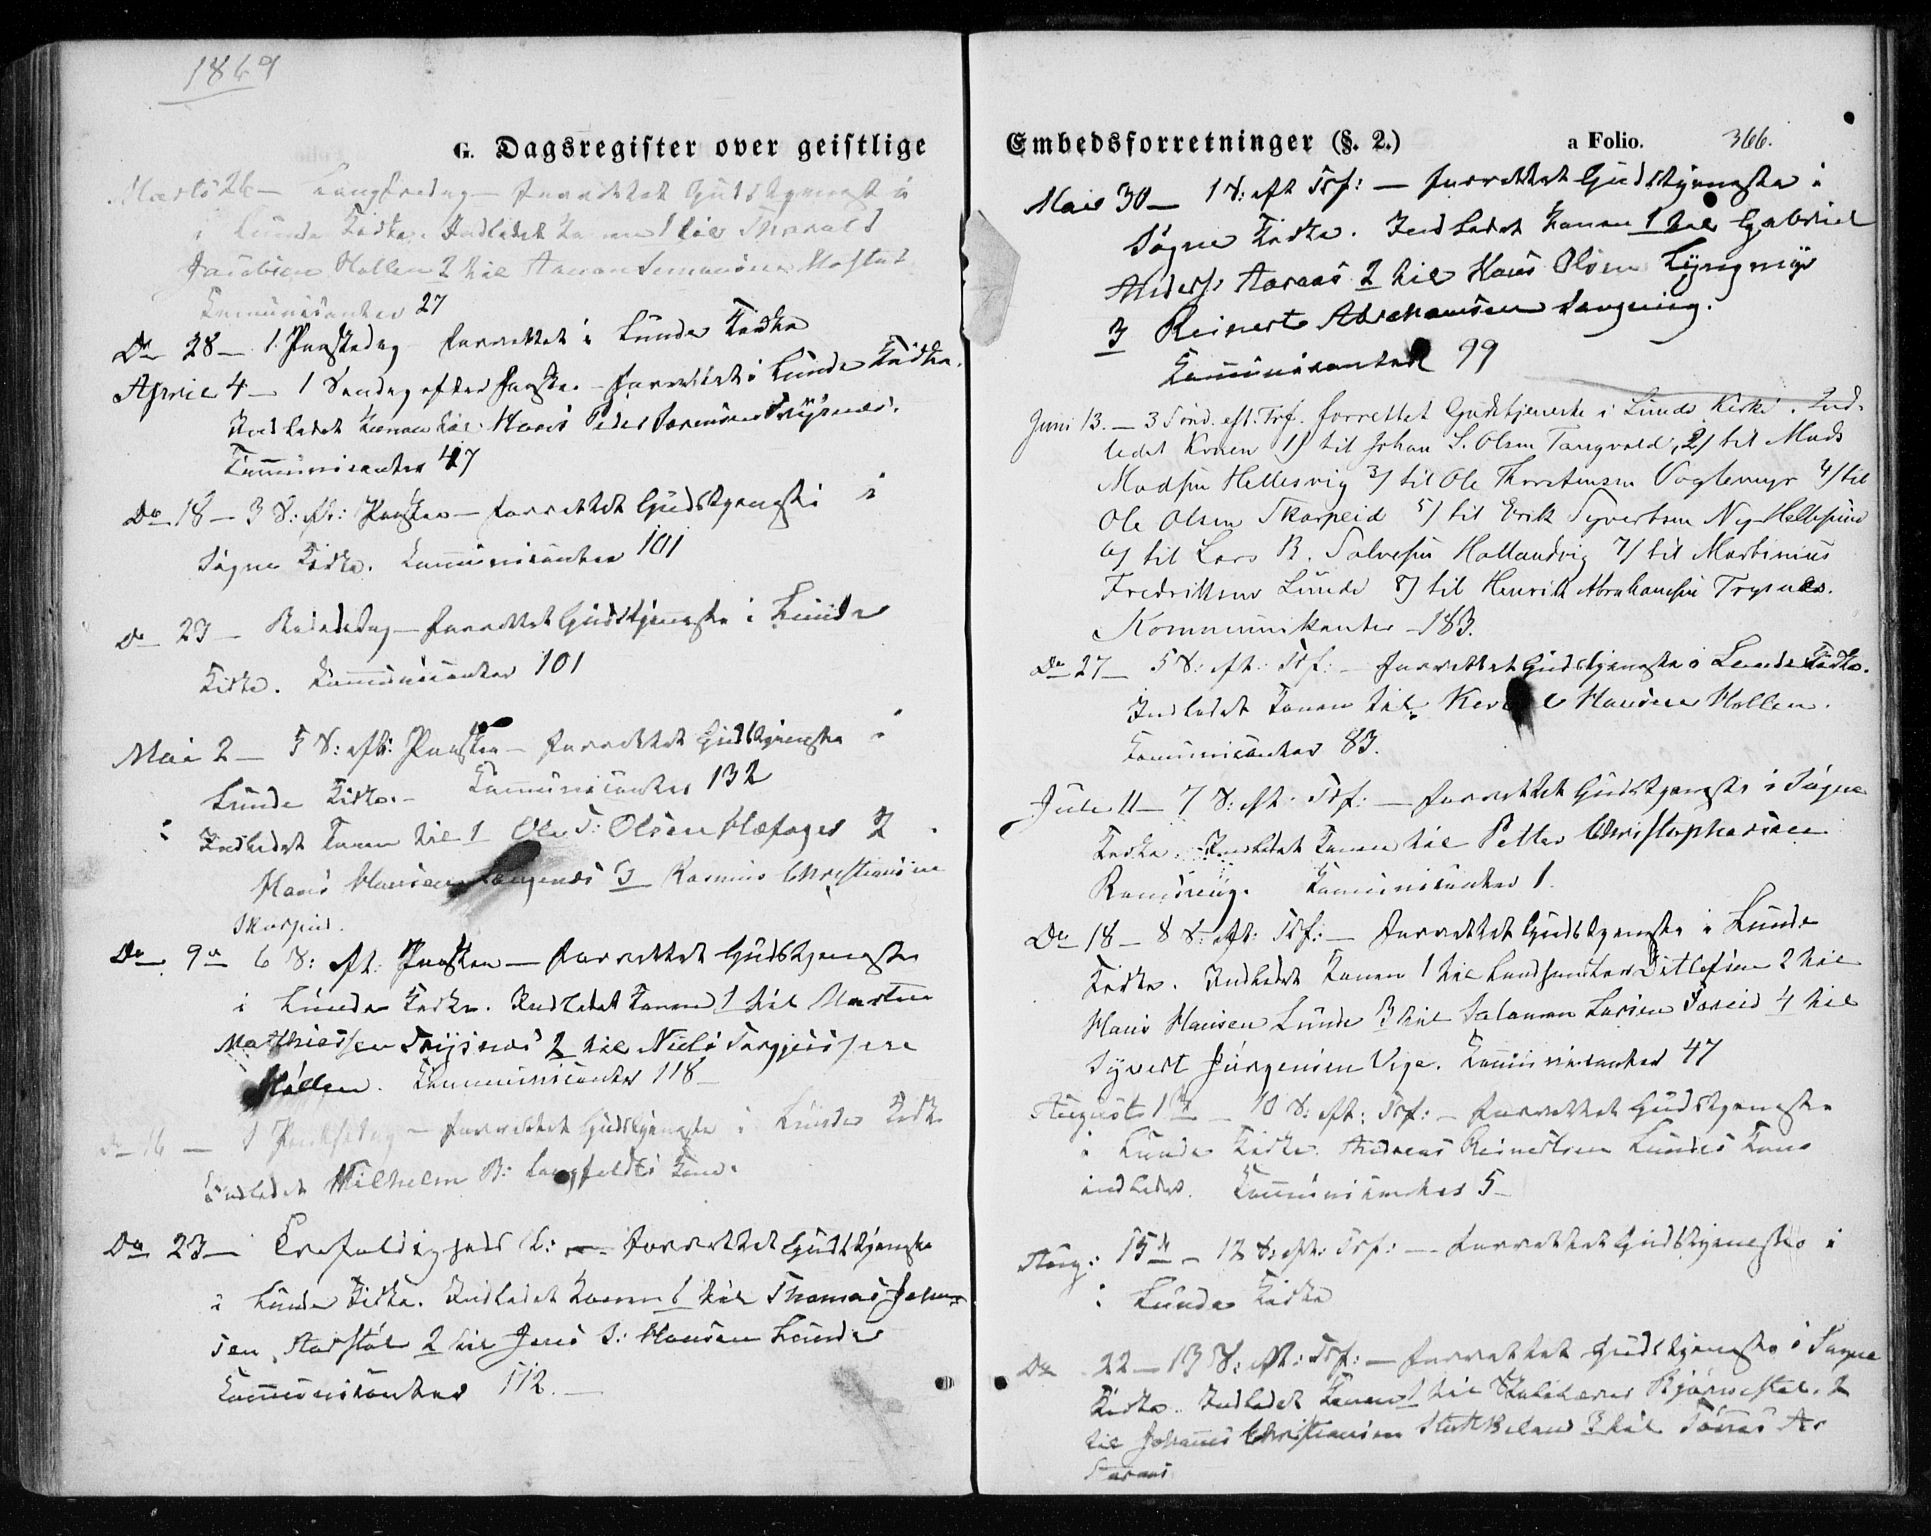 1869
G. Dagsregister over geistlige
Marts 26 — Langfredag — forrettet Gudstjeneste
i Lunde Kirke. Indledet Konen 1 til Tharald
Jacobsen Høllen 2 til
Communicanter 27
Do 28 — 1 Paaskedag forrettet i Lunde Kirke
April 4 — 1 Søndag efter Paaske — forrettet i Lunde Kirke.
Indledet Konen til Hans Peder Sørensen Trysnes.
Communicanter 47
Do 18 — 3 S: eft: Paaske — forrettet Gudstjeneste i
Søgne Kirke. Communicanter 101
Do 23 — Bededag — forrettet Gudstjeneste i Lunde
Kirke. Communicanter 101
Mai 2 — 5 S: eft: Paaske — forrettet Gudstjeneste i
Lunde Kirke. — Communicanter 132
Indledet Konen til 1 Ole T: Olsen 2
Hans Hansen Langenes 3 Rasmus Christiansen
Skarpeid.
Do 9de 6 S: eft. Paaske — forrettet Gudstjeneste
i Lunde Kirke. Indledet Konen 1 til Morten
Mathiassen Trysnes 2 til Niels Torgjussen
Høllen. Communicanter 118 —
Do 16 — 1 Pintsedag — forrettet Gudstjeneste i Lunde Kirke
Indledet Wilhelm B: Langfeldts Kone.
Do 23 — Trefoldigheds S: — forrettet Gudstjeneste
i Lunde Kirke. Indledet Konen 1 til Thomas Johan-
sen Aarstøl 2 til Jens S: Hansen Lunde
Communicanter 112. —
Embedsforretninger (§. 2.) a Folio. 366.
Mai 30 — 1 S: eft Trf: — forrettet Gudstjeneste i
Søgne Kirke. Indledet Konen 1 til Gabriel
Anders: Aaraas 2 til Hans Olsen Lyngmyr
3 Reinert Abrahamsen
Communicanter 99
Juni 13. — 3 Sønd. eft. Trf. forrettet Gudstjeneste i Lunde Kirke. Ind-
ledet Konen 1) til Johan S. Olsen Tangvald, 2) til Mads
Madsen Hellesvig 3) til Ole Thorstensen Voglemyr 4) til
Ole Olsen Skarpeid 5) til Erik Syvertsen Ny-Hellesund
6) til Lars B. Salvesen Hallandvig 7) til Martinius
Fredriksen Lunde 8) til Henrik Abrahamsen Trysnes.
Kommunikanter — 183.
Do 27 — 5 S: eft: Trf: — forrettet Gudstjeneste i Lunde Kirke.
Indledet Konen til Hansen Høllen.
Communicanter 83.
Juli 11 — 7 S: eft: Trf: — forrettet Gudstjeneste i Søgne
Kirke. Indledet Konen til Petter Christophersen
Communicanter 1.
Do 18 — 8 S: eft: Trf: — forrettet Gudstjeneste i Lunde
Kirke. Indledet Konen 1 til Ditlefsen 2 til
Hans Hansen Lunde 3 til Salomon Larsen 4 til
Syvert Jørgensen Vige. Communicanter 47
August 1ste — 10 S: eft: Trf: — forrettet Gudstjeneste
i Lunde Kirke. Andreas Reinertsen Lundes Kone
indledet. Communicanter 5 —
Aug: 15de — 12 S: eft: Trf: — forrettet Gudstjeneste i
i Lunde Kirke
Do 22 — 13 S: eft: Trf: — forrettet Gudstjeneste i Søgne
Kirke. Indledet Konen 1 til 2
til Johannes Christiansen Stokkeland 3 til Tønnes As